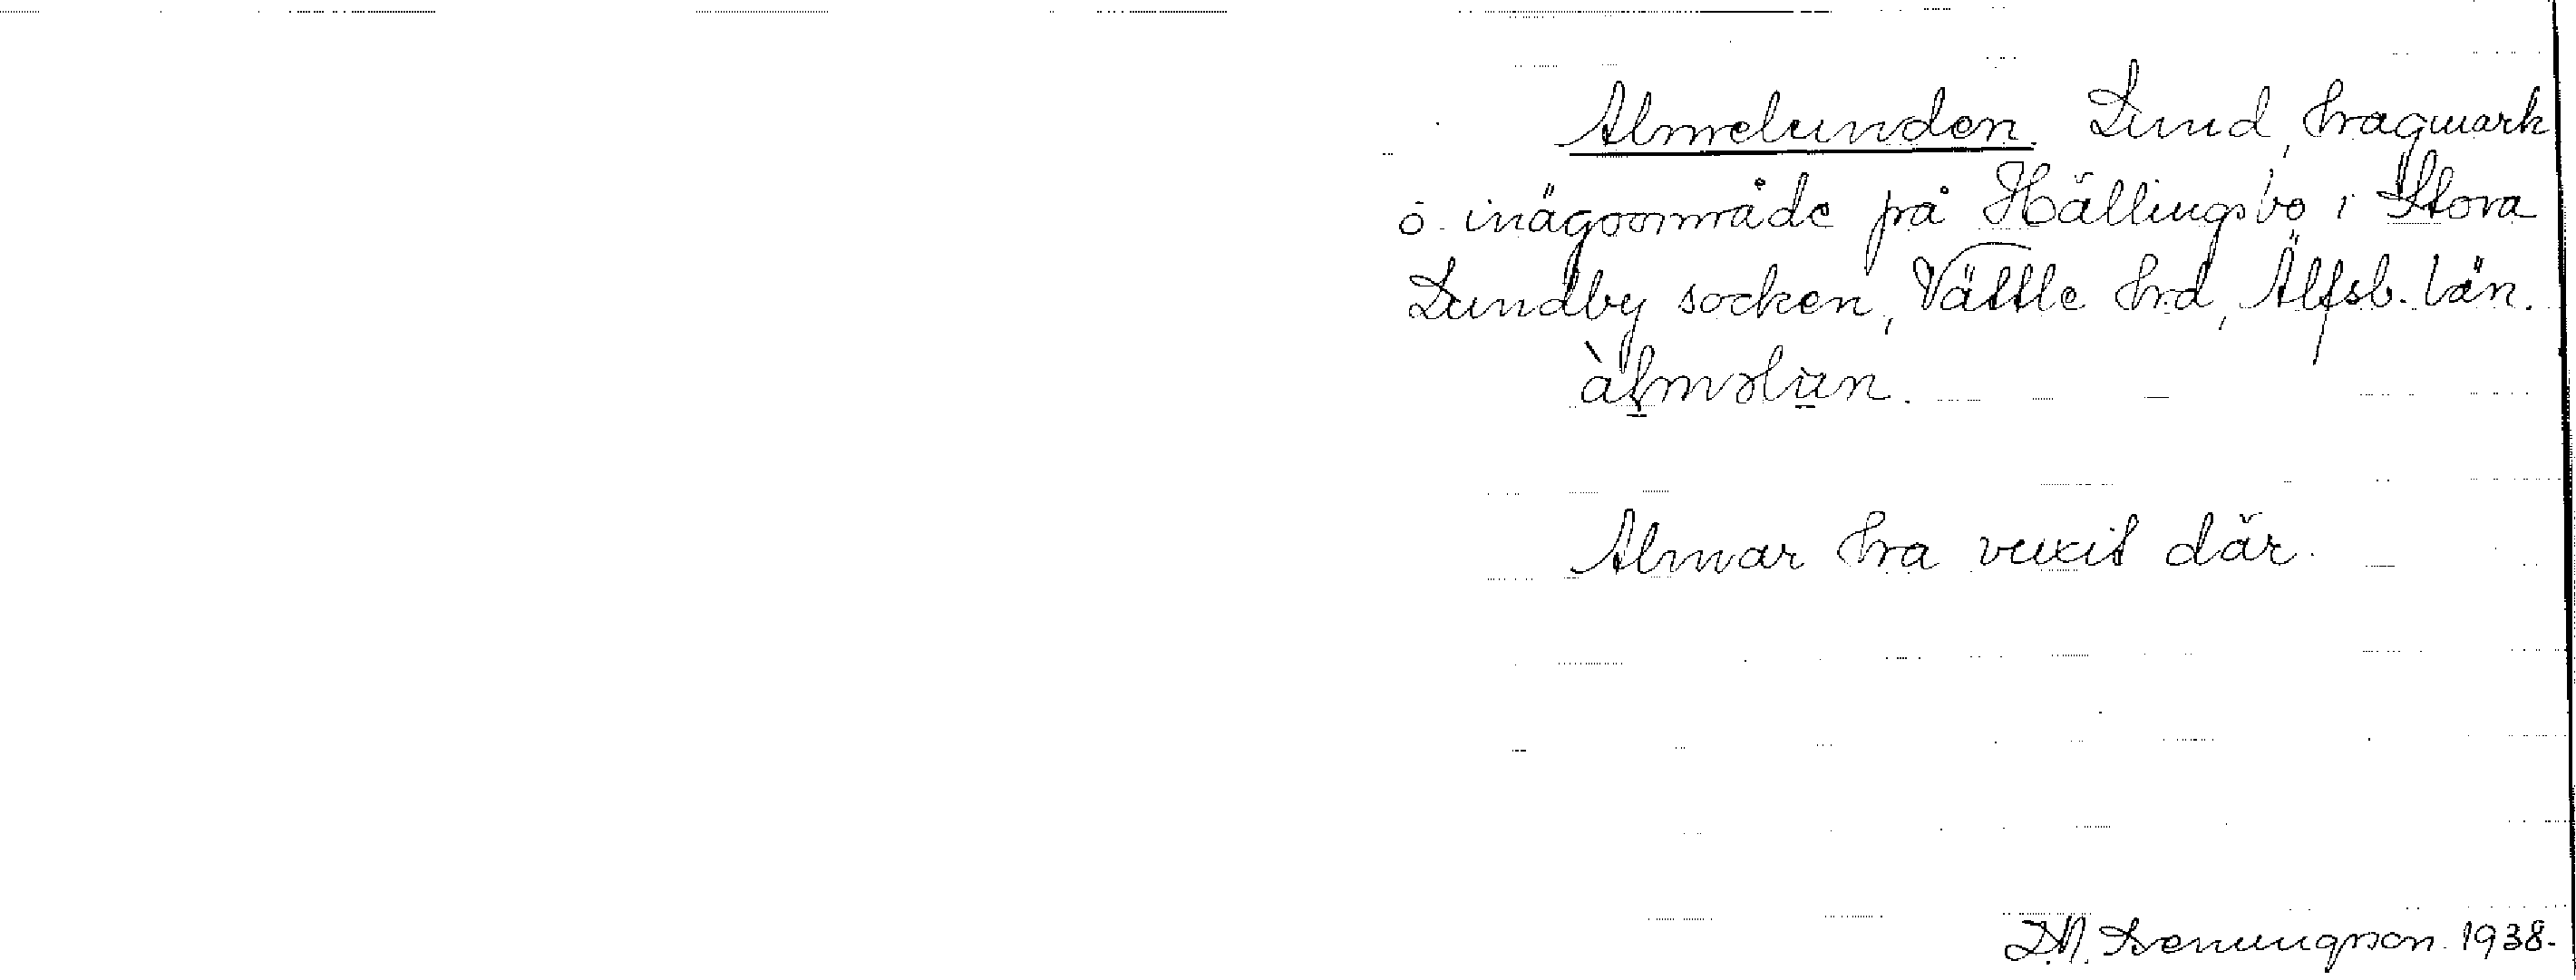 Almelunden. Lund, hagmark
o. inägoområde på Hällingsbo i Stora
Lundby socken, Vättle hd, Älfsb. län.
àl̠məlu̠n.
Almar ha vuxit där.
1938.